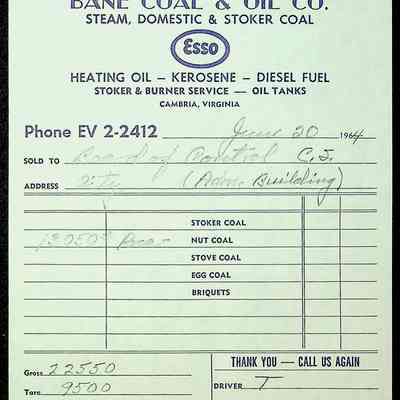 BANE COAL & OIL CO.
STEAM, DOMESTIC & STOKER COAL
Esso
HEATING OIL – KEROSENE – DIESEL FUEL
STOKER & BURNER SERVICE – OIL TANKS
CAMBRIA, VIRGINIA
Phone EV 2-2412 June 20 1964
SOLD TO Board of Control C.I.
ADDRESS City (Adm. Building)
STOKER COAL
13050# NUT COAL
STOVE COAL
EGG COAL
BRIQUETS
Gross 22550
Tare 9500
THANK YOU – CALL US AGAIN
DRIVER T